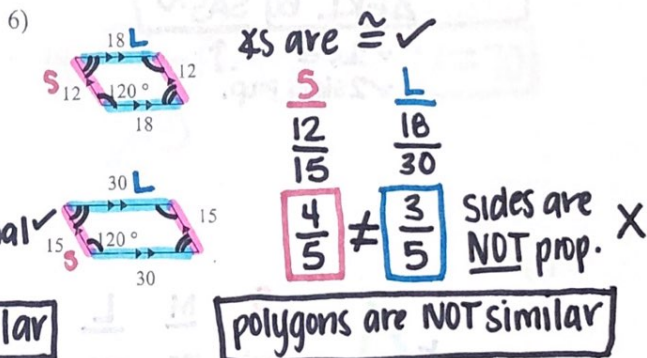 6)
18 L
∡s are ≅ ✓
S 12 120° 12
18
S L
12/15 18/30
30 L
al ✓
15 S 120° 15
30
4/5 ≠ 3/5 sides are NOT prop. X
lar
polygons are NOT similar